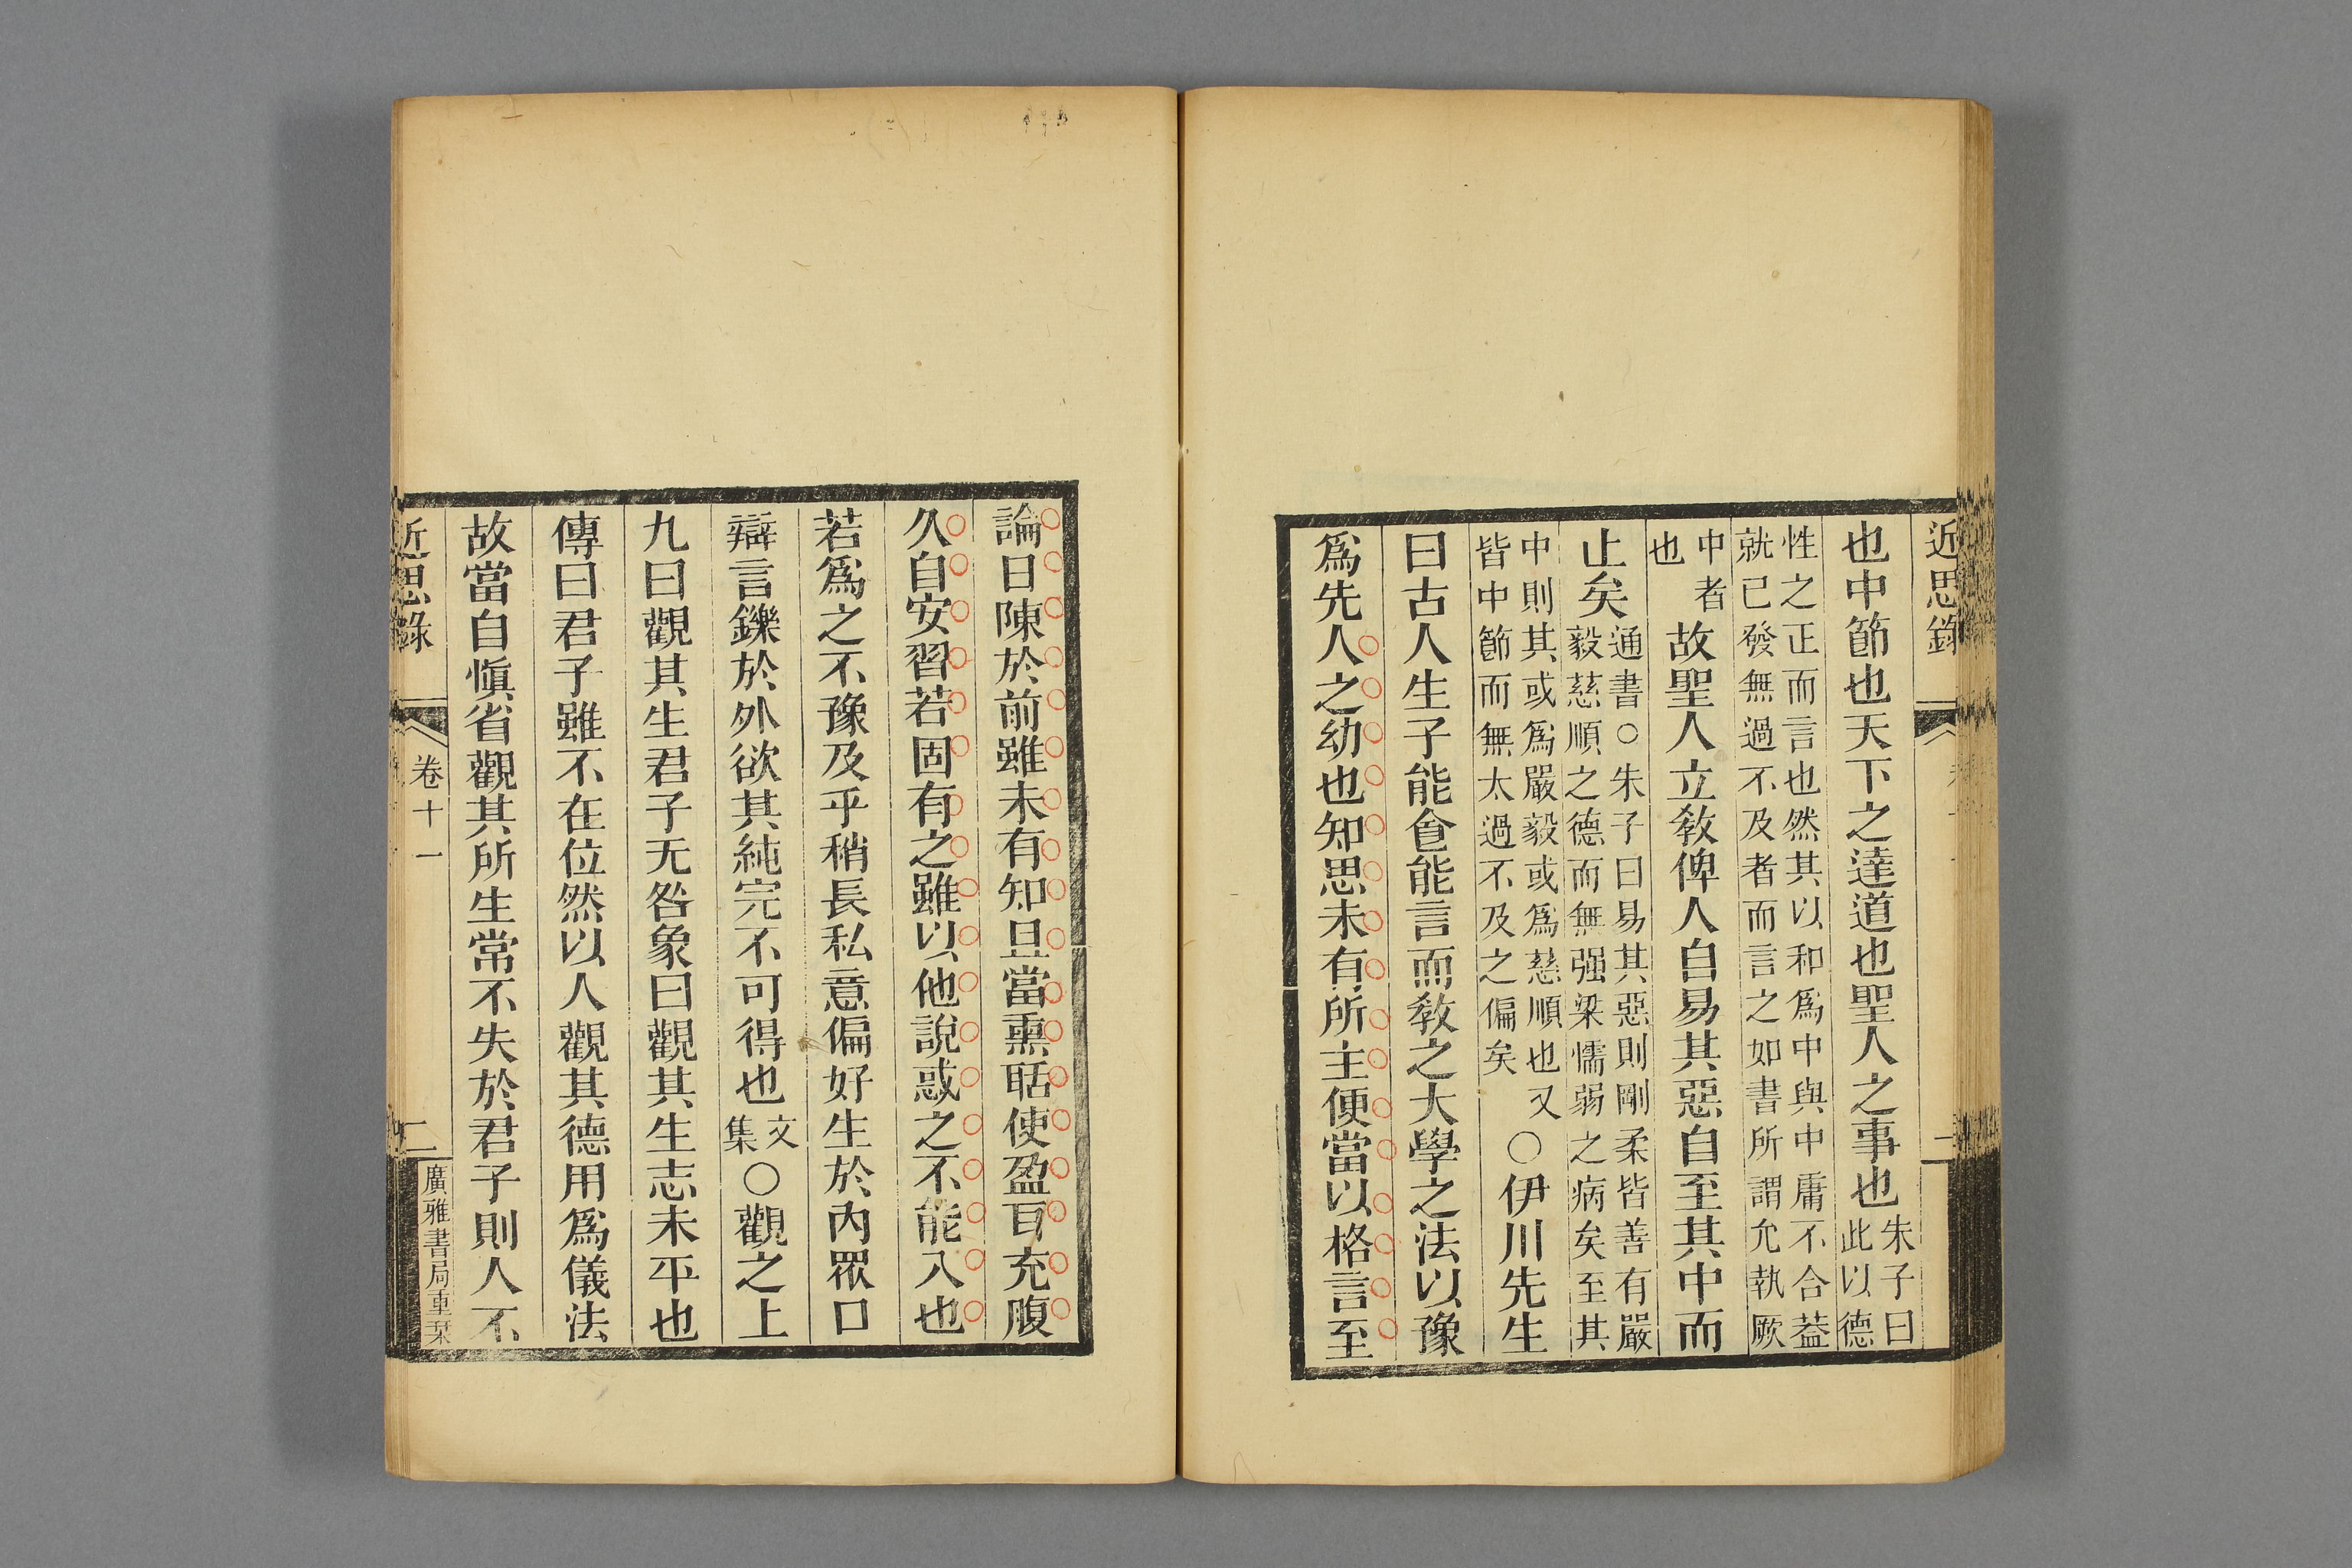 近思錄
二
也中節也天下之達道也聖人之事也朱子曰此以德
性之正而言也然其以和爲中與中庸不合葢
就已發無過不及者而言之如書所謂允執厥
中者也故聖人立敎俾人自易其惡自至其中而
止矣通書○朱子曰易其惡則剛柔皆善有嚴
毅慈順之德而無强梁懦弱之病矣至其
中則其或爲嚴毅或爲慈順也又
皆中節而無太過不及之偏矣○伊川先生
曰古人生子能食能言而敎之大學之法以豫
爲先人之幼也知思未有所主便當以格言至
論日陳於前雖未有知且當熏聒使盈耳充腹
久自安習若固有之雖以他說惑之不能入也
若爲之不豫及乎稍長私意偏好生於內眾口
辯言鑠於外欲其純完不可得也文集○觀之上
九曰觀其生君子无咎象曰觀其生志未平也
傳曰君子雖不在位然以人觀其德用爲儀法
故當自愼省觀其所生常不失於君子則人不
近思錄
卷十一
二
廣雅書局重栞